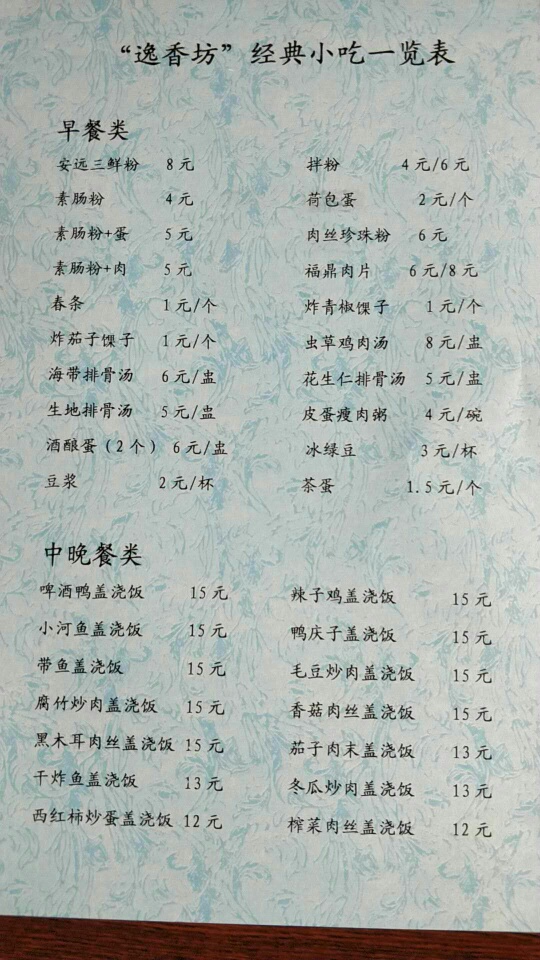 “逸香坊”经典小吃一览表
早餐类
安远三鲜粉 8元 拌粉 4元/6元
素肠粉 4元 荷包蛋 2元/个
素肠粉+蛋 5元 肉丝珍珠粉 6元
素肠粉+肉 5元 福鼎肉片 6元/8元
春条 1元/个 炸青椒馃子 1元/个
炸茄子馃子 1元/个 虫草鸡肉汤 8元/盅
海带排骨汤 6元/盅 花生仁排骨汤 5元/盅
生地排骨汤 5元/盅 皮蛋瘦肉粥 4元/碗
酒酿蛋（2个） 6元/盅 冰绿豆 3元/杯
豆浆 2元/杯 茶蛋 1.5元/个
中晚餐类
啤酒鸭盖浇饭 15元 辣子鸡盖浇饭 15元
小河鱼盖浇饭 15元 鸭庆子盖浇饭 15元
带鱼盖浇饭 15元 毛豆炒肉盖浇饭 15元
腐竹炒肉盖浇饭 15元 香菇肉丝盖浇饭 15元
黑木耳肉丝盖浇饭 15元 茄子肉末盖浇饭 13元
干炸鱼盖浇饭 13元 冬瓜炒肉盖浇饭 13元
西红柿炒蛋盖浇饭 12元 榨菜肉丝盖浇饭 12元